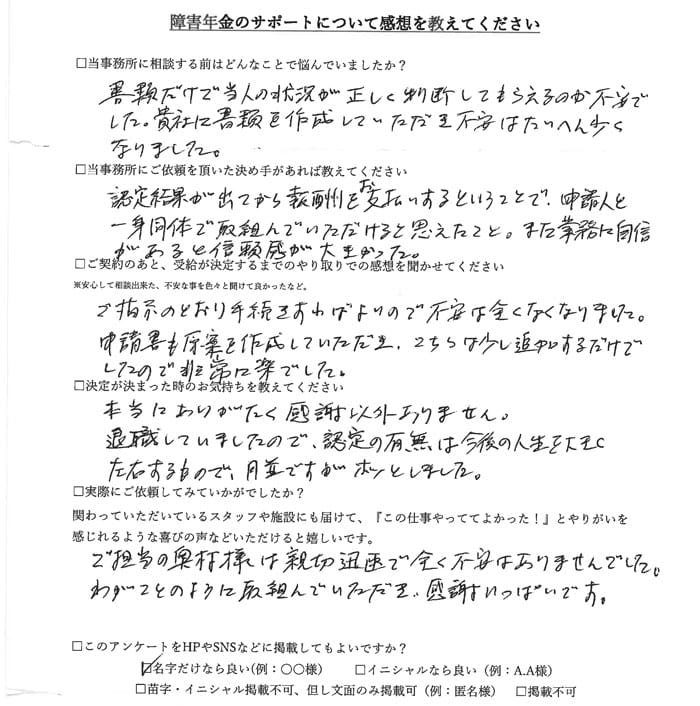 障害年金のサポートについて感想を教えてください
□当事務所に相談する前はどんなことで悩んでいましたか？
書類だけで当人の状況が正しく判断してもらえるのか不安で
した。貴社に書類を作成していただき不安はたいへん少く
なりました。
□当事務所にご依頼を頂いた決め手があれば教えてください
認定結果が出てから報酬をお支払いするということで、申請人と
一身同体で取組んでいただけると思えたこと。また業務に自信
があると信頼感が大きかった。
□ご契約のあと、受給が決定するまでのやり取りでの感想を聞かせてください
※安心して相談出来た、不安な事を色々と聞けて良かったなど。
ご指示のとおり手続きすればよいので不安は全くなくなりました。
申請書も原案を作成していただき、こちらは少し追加するだけで
したので非常に楽でした。
□決定が決まった時のお気持ちを教えてください
本当にありがたく感謝以外ありません。
退職していましたので、認定の有無は今後の人生を大きく
左右するもので、月並ですがホッとしました。
□実際にご依頼してみていかがでしたか？
関わっていただいているスタッフや施設にも届けて、『この仕事やっててよかった！』とやりがいを
感じれるような喜びの声などいただけると嬉しいです。
ご担当の奥村様は親切迅速で全く不安はありませんでした。
わがことのように取組んでいただき、感謝はいっぱいです。
□このアンケートをHPやSNSなどに掲載してもよいですか？
☑名字だけなら良い(例：〇〇様)　□イニシャルなら良い（例：A.A様）
□苗字・イニシャル掲載不可、但し文面のみ掲載可（例：匿名様）　□掲載不可